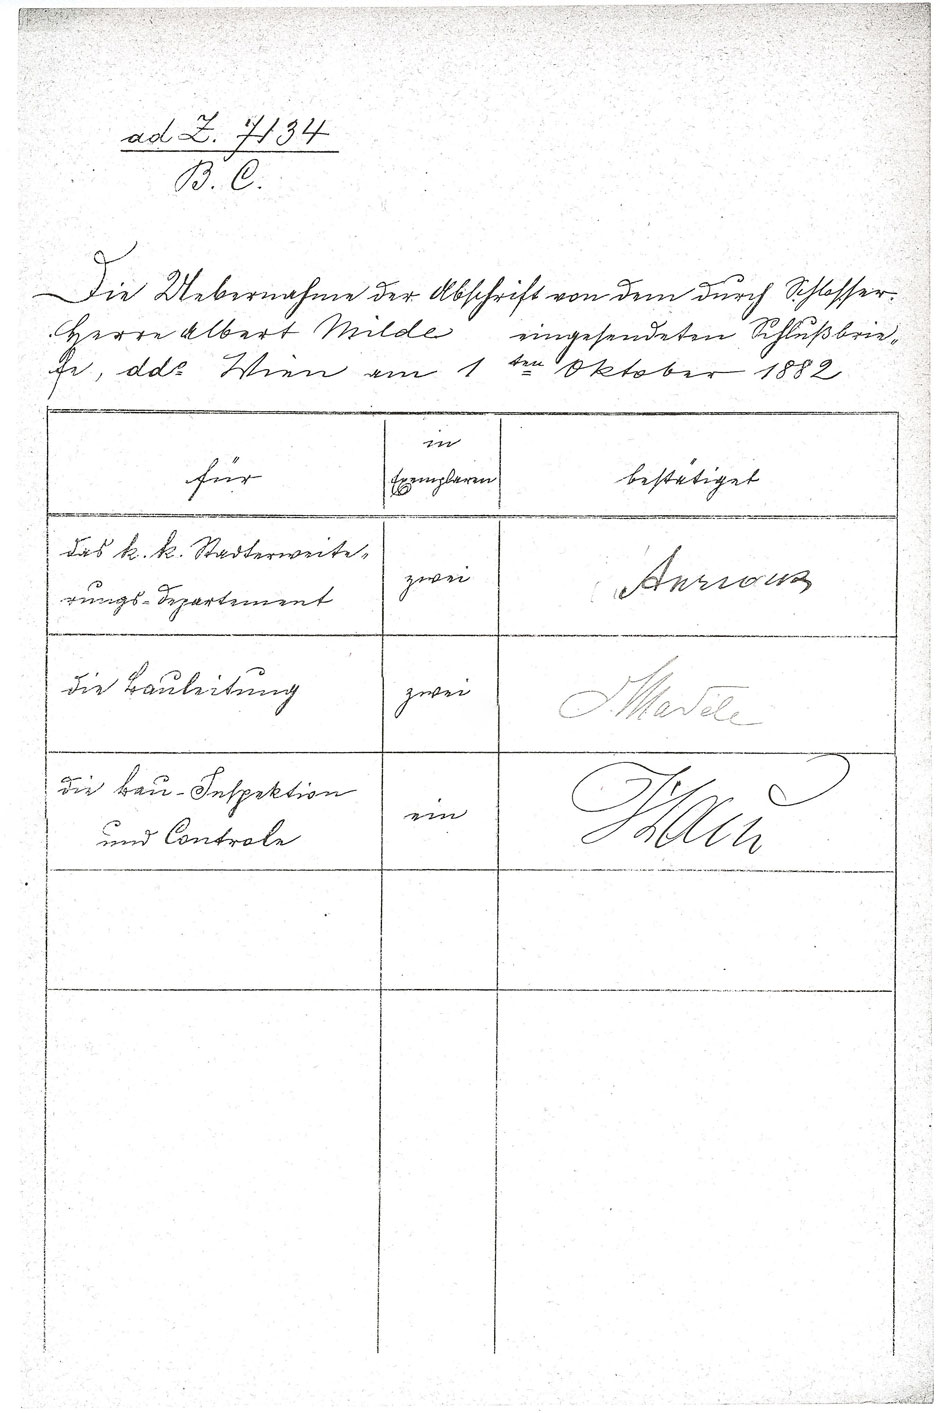 ad Z. 7134
B. C.
Die Uebernahme der Abschrift von dem durch Schlosser.
Herrn Albert Milde eingesendeten Schlußbrie„
fe, ddo Wien am 1ten Oktober 1882
für
in Exemplaren
bestätiget
das k. k. Stadterweite-
rungs-Departement
zwei
die Bauleitung
zwei
die Bau-Inspektion
und Controle
ein